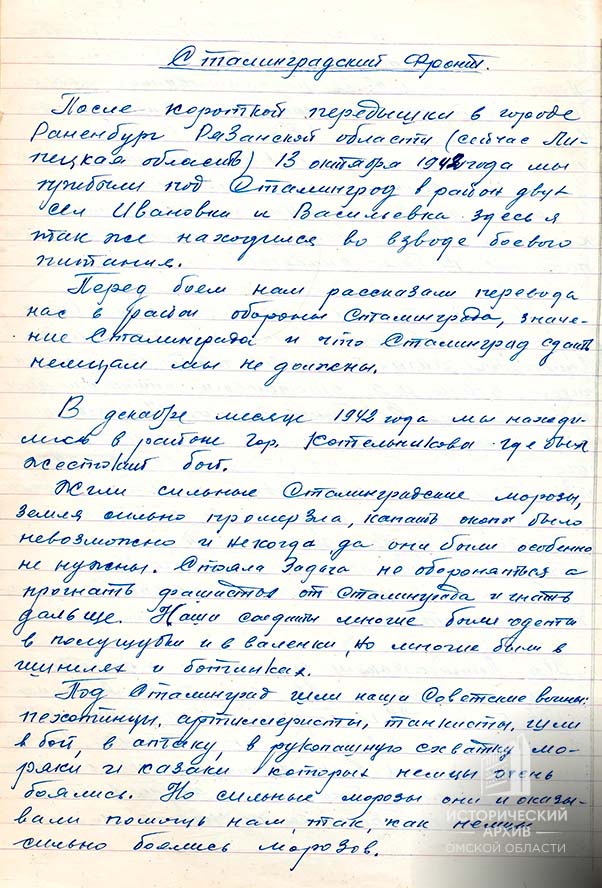 Сталинградский Фронт.
После короткой передышки в городе
Раненбург Рязанской области (сейчас Ли-
пецкая область) 13 октября 1942 года мы
прибыли под Сталинград в район двух
сел Ивановка и Васильевка. здесь я
так же находился во взводе боевого
питания.
Перед боем нам рассказали
нас в район обороны Сталинграда, значе-
ние Сталинграда и что Сталинград сдать
немцам мы не должны.
В декабре месяце 1942 года мы находи-
лись в районе гор. Котельниково где был
жестокий бой.
Жгли сильные Сталинградские морозы,
земля сильно промерзла, капать окопы было
невозможно и некогда да они были особенно
не нужны. Стояла задача не обороняться а
прогнать фашистов от Сталинграда и гнать
дальше. Наши солдаты многие были одеты
в полушубки и в валенки, но многие были в
шинелях и ботинках.
Под Сталинград шли наши Советские воины:
пехотинцы, артиллеристы, танкисты, шли
в бой, в атаку, в рукопашную схватку мо-
ряки и казаки которых немцы очень
боялись. Но сильные морозы они и оказы-
вали помощь нам, так, как немцы
сильно боялись морозов.
ИСТОРИЧЕСКИЙ
АРХИВ
ОМСКОЙ ОБЛАСТИ